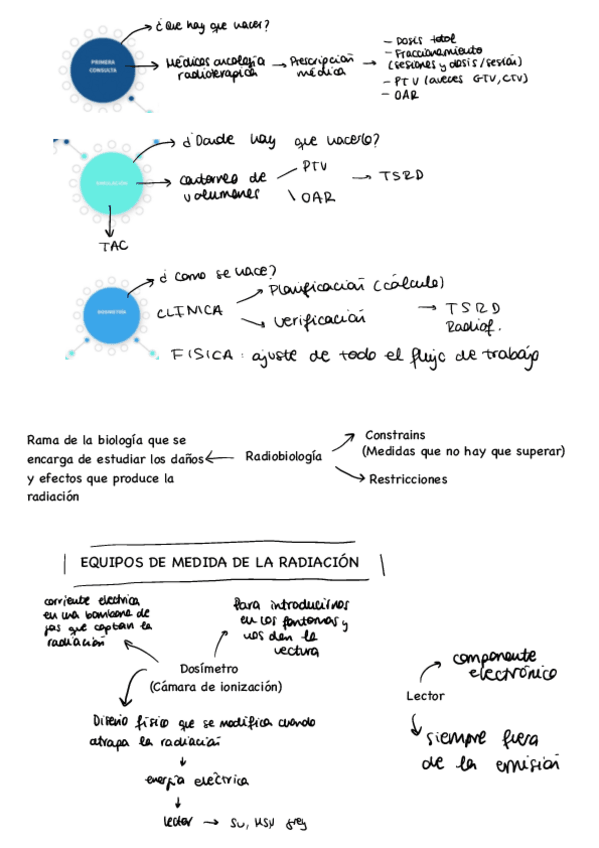 ¿Que hay que hacer?
PRIMERA
CONSULTA
Médicos oncología
radioterapica
Prescripción
médica
- Dosis total
- Fraccionamiento
(sesiones y dosis/sesión)
- PTV (aveces GTV, CTV)
- OAR
¿Donde hay que hacerlo?
SIMULACIÓN
contorneo de
volumenes
PTV
OAR
TSRD
TAC
¿como se hace?
DOSIMETRÍA
CLINICA
Planificación (cálculo)
verificación
TSRD
Radiof.
FISICA: ajuste de todo el flujo de trabajo
Rama de la biología que se
encarga de estudiar los daños
y efectos que produce la
radiación
Radiobiología
Constrains
(Medidas que no hay que superar)
Restricciones
EQUIPOS DE MEDIDA DE LA RADIACIÓN
corriente electrica
en una bombona de
gas que captan la
radiación
Para introducirnos
en los fantomas y
nos den la
lectura
Dosímetro
(Cámara de ionización)
Diseño físico que se modifica cuando
atrapa la radiación
energía eléctrica
lector → Su, grey
componente
electrónico
Lector
siempre fuera
de la emisión